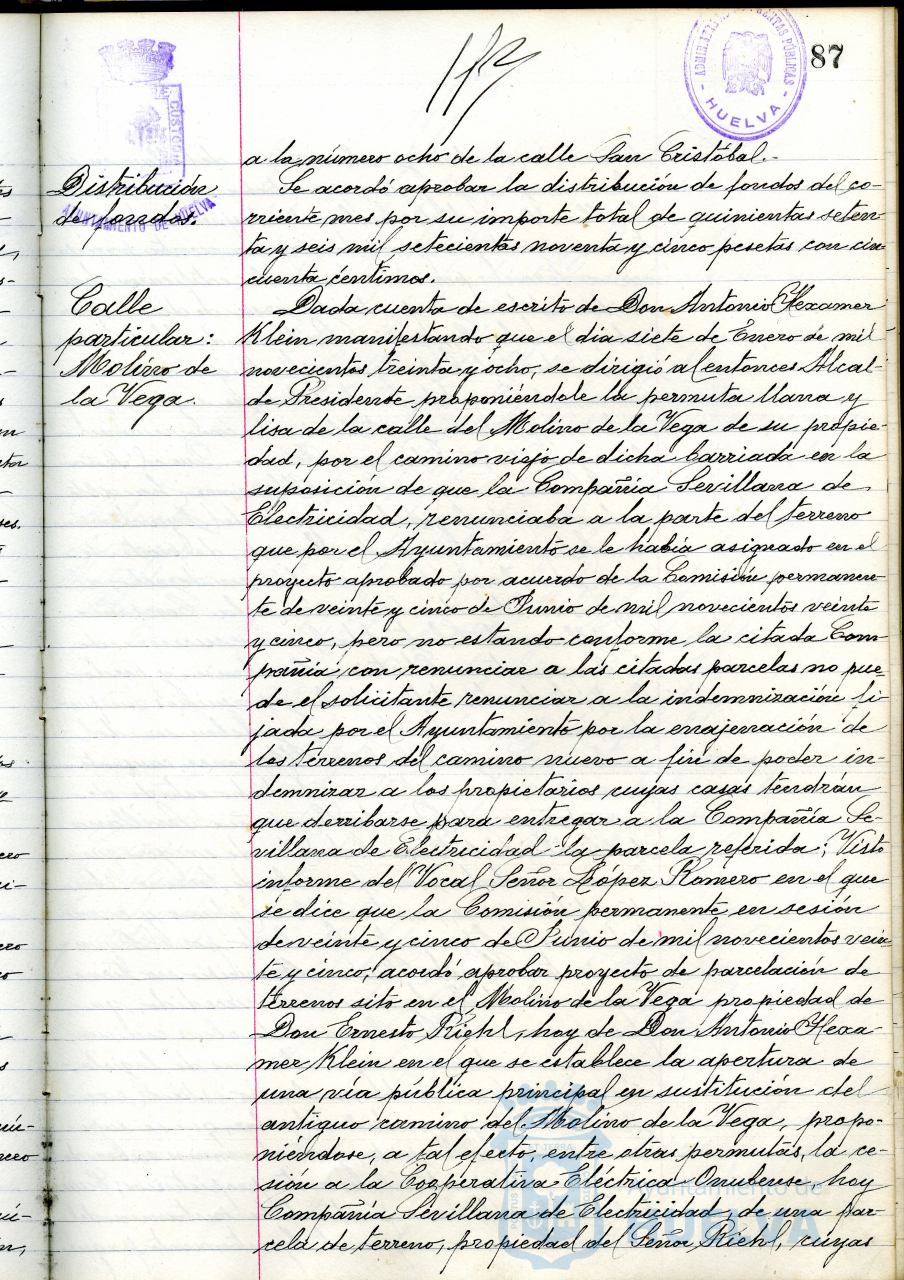 87
ADMINISTRACION DE RENTAS PÚBLICAS
- HUELVA -
AYUNTAMIENTO DE HUELVA
a la número ocho de la calle San Cristóbal.-
Distribución
de fondos.
Se acordó aprobar la distribución de fondos del co-
rriente mes por su importe total de quinientas seten-
ta y seis mil setecientas noventa y cinco pesetas con cin-
cuenta céntimos.
Calle
particular:
Molino de
la Vega.
Dada cuenta de escrito de Don Antonio Hexamer
Klein manifestando que el día siete de Enero de mil
novecientos treinta y ocho, se dirigió al entonces Alcal-
de Presidente proponiéndole la permuta llana y
lisa de la calle del Molino de la Vega de su propie-
dad, por el camino viejo de dicha barriada en la
suposición de que la Compañía Sevillana de
Electricidad, renunciaba a la parte del terreno
que por el Ayuntamiento se le había asignado en el
proyecto aprobado por acuerdo de la Comisión permanen-
te de veinte y cinco de Junio de mil novecientos veinte
y cinco, pero no estando conforme la citada Com-
pañía con renunciar a las citadas parcelas no pue-
de el solicitante renunciar a la indemnización fi-
jada por el Ayuntamiento por la enajenación de
los terrenos del camino nuevo a fin de poder in-
demnizar a los propietarios cuyas casas tendrán
que derribarse para entregar a la Compañía Se-
villana de Electricidad la parcela referida; Visto
informe del Vocal Señor López Romero en el que
se dice que la Comisión permanente en sesión
de veinte y cinco de Junio de mil novecientos vein-
te y cinco, acordó aprobar proyecto de parcelación de
terrenos sito en el Molino de la Vega propiedad de
Don Ernesto Riehl, hoy de Don Antonio Hexa-
mer Klein en el que se establece la apertura de
una vía pública principal en sustitución del
antiguo camino del Molino de la Vega, propo-
niéndose, a tal efecto, entre otras permutas, la ce-
sión a la Cooperativa Eléctrica Onubense, hoy
Compañía Sevillana de Electricidad, de una par-
cela de terreno, propiedad del Señor Riehl, cuyas
Ayuntamiento de
HUELVA